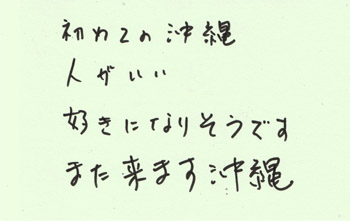 初めての沖縄
人がいい
好きになりそうです
また来ます沖縄